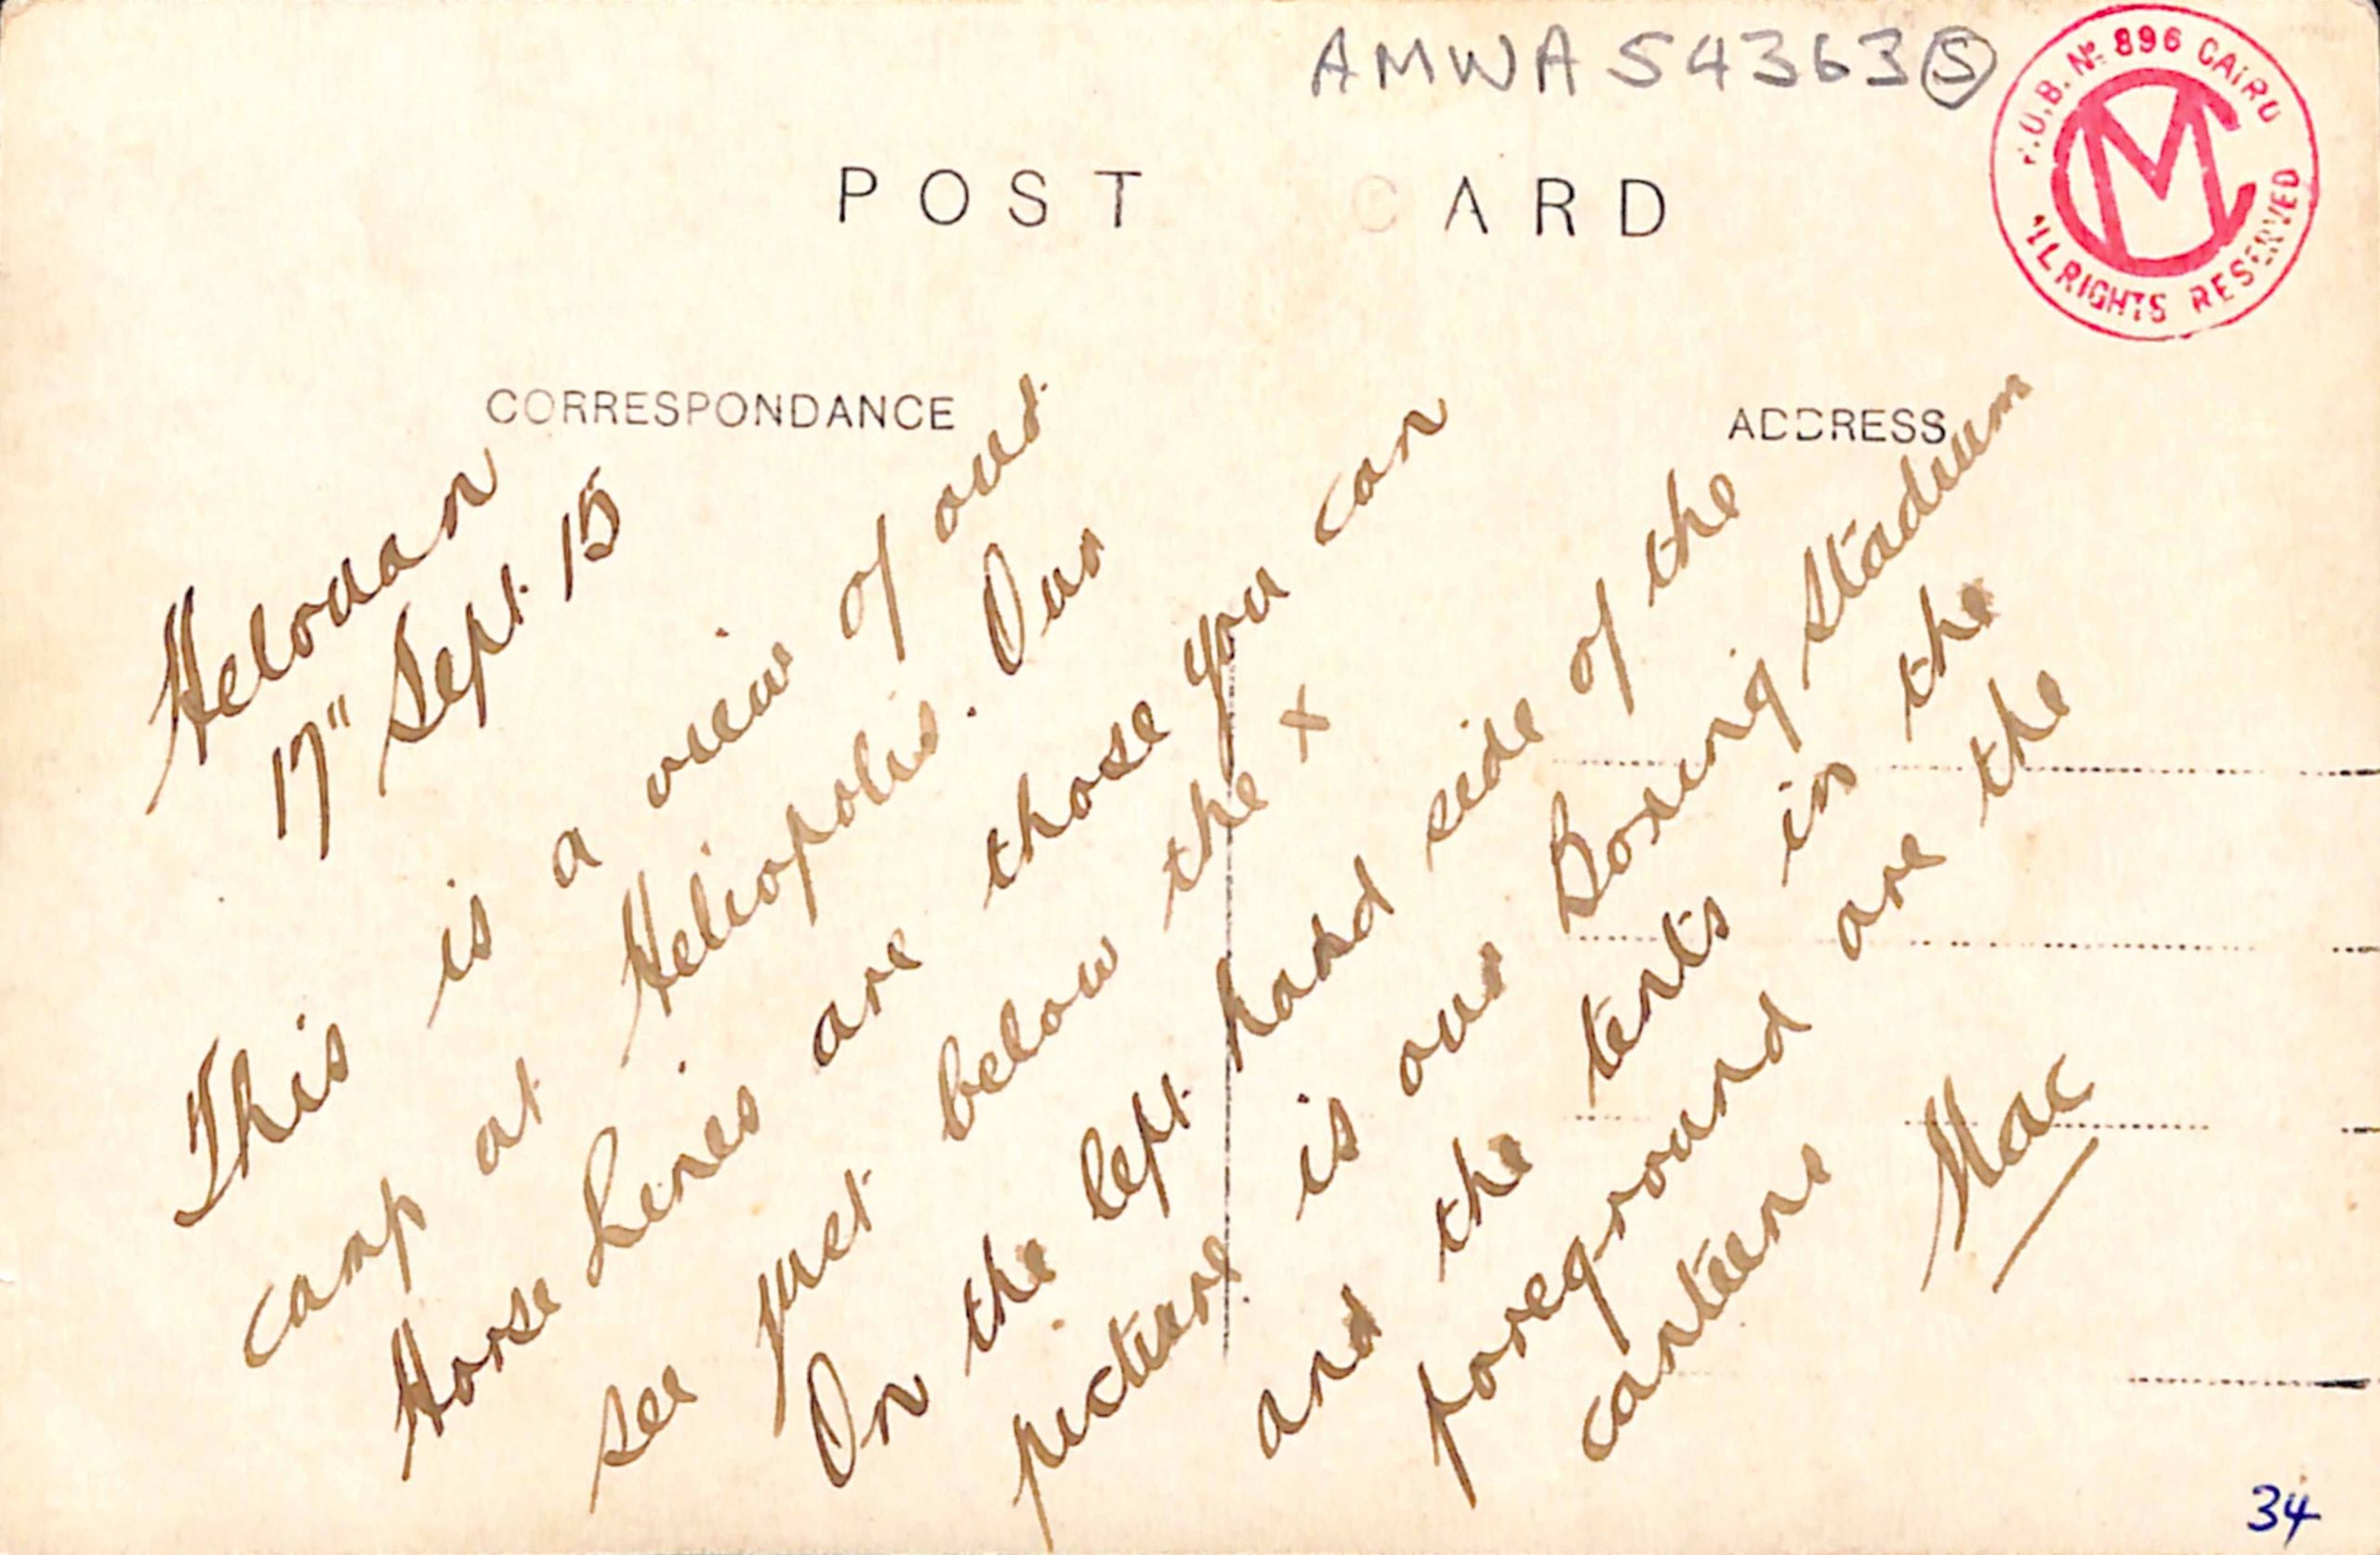 AMWA 54363 S
PUB. Nº 896 CAIRO
CM
ALL RIGHTS RESERVED
POST CARD
CORRESPONDANCE
ADDRESS
Helouan
17" Sept. 15
This is a view of our
camp at Heliopolis. Our
Horse Lines are those you can
see just below the +
On the left hand side of the
picture is our Boxing Stadium
and the tents in the
foreground are the
canteens
Mac
34